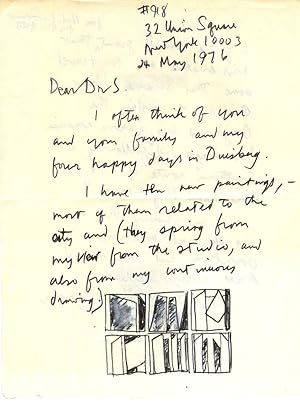 #918
32 Union Square
New York 10003
24 May 1976
Dear Dr S.
I often think of you
and your family and my
four happy days in Duisberg.
I have ten new paintings, –
most of them related to the
city and (they spring from
my view from the studio, and
also from my continuous
drawing.)